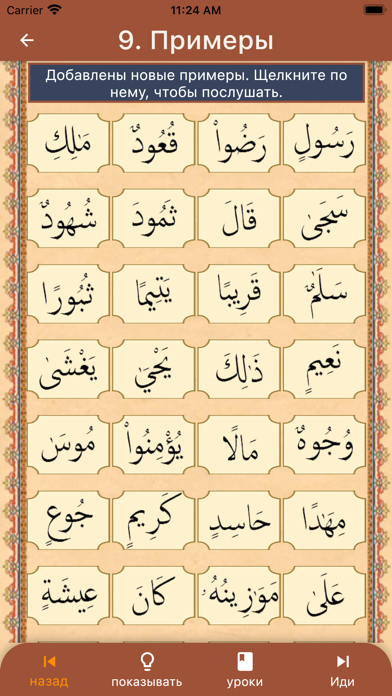 Carrier 11:24 AM
9. Примеры
Добавлены новые примеры. Щелкните по
нему, чтобы послушать.
رَسُولٍ رَضُوا۟ قُعُودٌ مَٰلِكِ
سَجَىٰ قَالَ ثَمُودَ شُهُودٌ
سَلَٰمٌ قَرِيبًا يَتِيمًا ثُبُورًا
نَعِيمٍ ذَٰلِكَ يَحْيَىٰ يَغْشَىٰ
وُجُوهٌ مَالًا يُؤْمِنُوا۟ مُوسَىٰ
مِهَٰدًا حَاسِدٍ كَرِيمٍ جُوعٍ
عَلَىٰ مَوَٰزِينُهُۥ كَانَ عِيشَةٍ
назад показывать уроки Иди